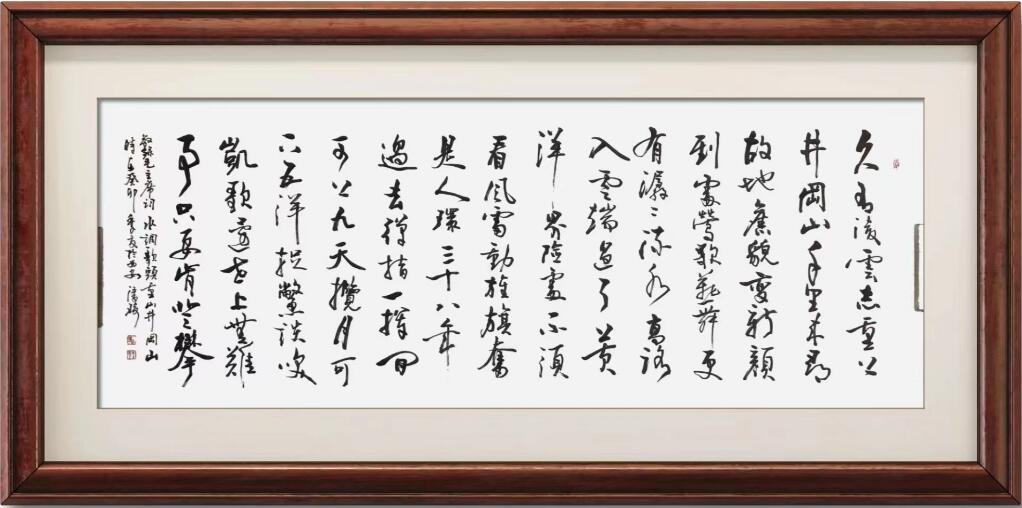 久有凌雲志重上
井岡山千里来尋
故地舊貌變新顔
到處鶯歌燕舞更
有潺〻流水高路
入雲端過了黄
洋界險處不須
看風雷動旌旗奮
是人環三十八年
過去彈指一揮間
可上九天攬月可
下五洋捉鱉談笑
凱歌還世上無難
事只要肯登攀
敬録毛主席詞水調歌頭重上井岡山
時在癸卯季夏於西安